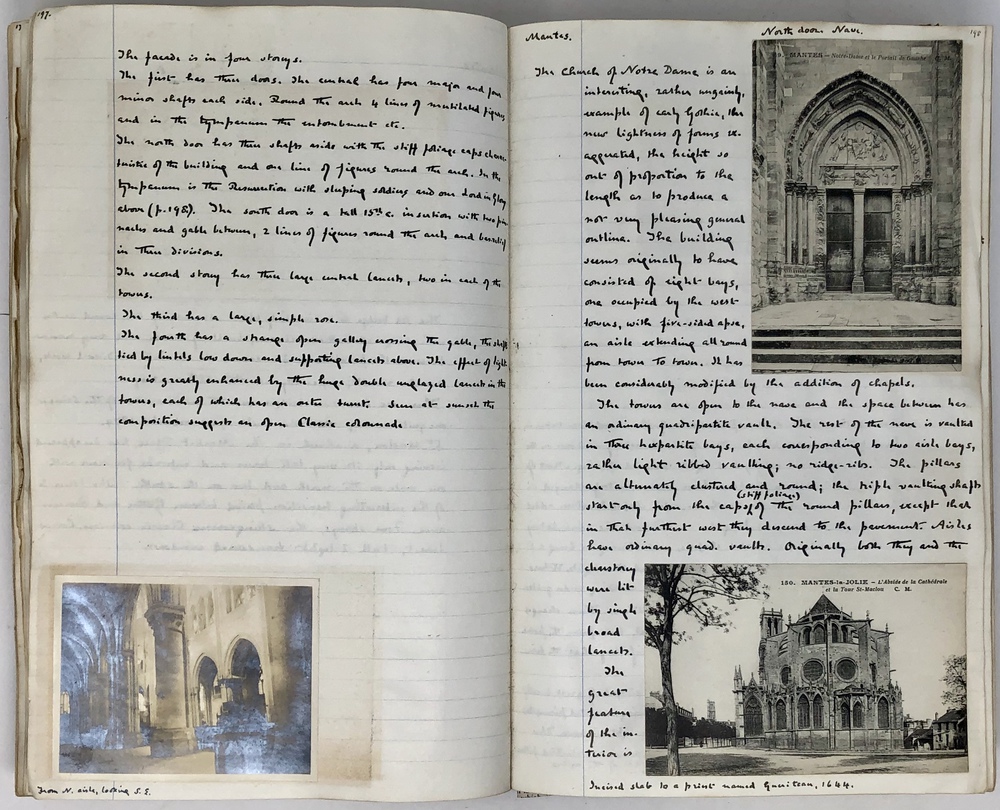 197.
The facade is in four storys.
The first has three doors. The central has four major and four
minor shafts each side. Round the arch 4 lines of mutilated figures
and in the tympanum the entombment etc.
The north door has three shafts aside with the stiff foliage caps charac-
teristic of the building and one line of figures round the arch. In the
tympanum is the Resurrection with sleeping soldiers and our Lord in Glory
above (p. 198). The south door is a tall 15th c. insertion with two pin-
nacles and gable between, 2 lines of figures round the arch and bas relief
in three divisions.
The second story has three large central lancets, two in each of the
towers.
The third has a large, simple rose.
The fourth has a strange open gallery crossing the gable, the shafts
tied by lintels low down and supporting lancets above. The effect of light-
ness is greatly enhanced by the huge double unglazed lancets in the
towers, each of which has an outer turret. Seen at sunset the
composition suggests an open Classic colonnade
From N. aisle, looking S.E.
198
Mantes.
North door. Nave.
MANTES — Notre-Dame et le Portail de Gauche C. M.
The Church of Notre Dame is an
interesting, rather ungainly,
example of early Gothic, the
new lightness of forms ex-
aggerated, the height so
out of proportion to the
length as to produce a
not very pleasing general
outline. The building
seems originally to have
consisted of eight bays,
one occupied by the west
towers, with five-sided apse,
an aisle extending all round
from tower to tower. It has
been considerably modified by the addition of chapels.
The towers are open to the nave and the space between has
an ordinary quadripartite vault. The rest of the nave is vaulted
in three hexpartite bays, each corresponding to two aisle bays,
rather light ribbed vaulting; no ridge-ribs. The pillars
are alternately clustered and round; the triple vaulting shafts
(stiff foliage)
start only from the caps of the round pillars, except that
in that furthest west they descend to the pavement. Aisles
have ordinary quad. vaults. Originally both they and the
clerestory
were lit
by single
broad
lancets.
The
great
feature
of the in-
terior is
130. MANTES-la-JOLIE — L'Abside de la Cathédrale
et la Tour St-Maclou C. M.
Incised slab to a priest named Gueriteau, 1644.